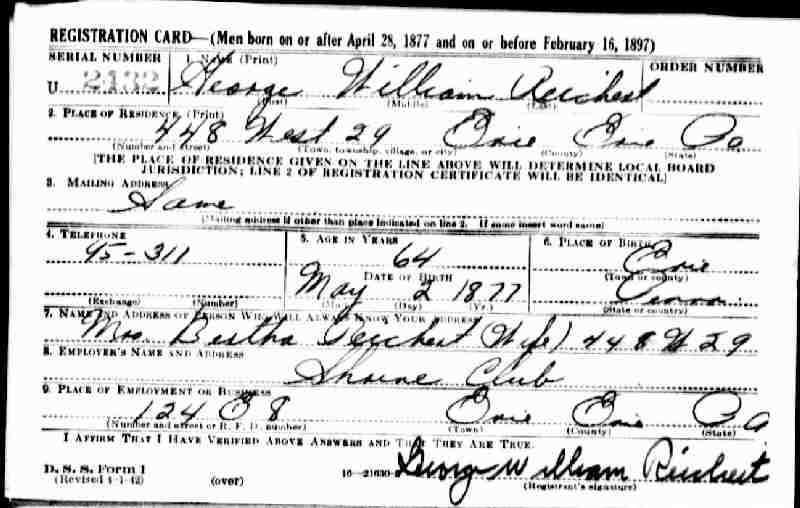 REGISTRATION CARD—(Men born on or after April 28, 1877 and on or before February 16, 1897)
SERIAL NUMBER 1. NAME (Print) ORDER NUMBER
U 2132 George William Reichert
(First) (Middle) (Last)
2. PLACE OF RESIDENCE (Print)
448 West 29 Erie Erie Pa
(Number and street) (Town, township, village, or city) (County) (State)
[THE PLACE OF RESIDENCE GIVEN ON THE LINE ABOVE WILL DETERMINE LOCAL BOARD
JURISDICTION; LINE 2 OF REGISTRATION CERTIFICATE WILL BE IDENTICAL]
3. MAILING ADDRESS
Same
[Mailing address if other than place indicated on line 2. If same insert word same]
4. TELEPHONE 5. AGE IN YEARS 6. PLACE OF BIRTH
45-311 64 Erie
DATE OF BIRTH (Town or county)
May 2 1877 Penna
(Exchange) (Number) (Mo.) (Day) (Yr.) (State or country)
7. NAME AND ADDRESS OF PERSON WHO WILL ALWAYS KNOW YOUR ADDRESS
Mrs Bertha Reichert (Wife) 448 W 29
8. EMPLOYER'S NAME AND ADDRESS
Shrine Club
9. PLACE OF EMPLOYMENT OR BUSINESS
124 E 8 Erie Erie Pa
(Number and street or R. F. D. number) (Town) (County) (State)
I AFFIRM THAT I HAVE VERIFIED ABOVE ANSWERS AND THAT THEY ARE TRUE.
D. S. S. Form 1 16—21630 George William Reichert
(Revised 4-1-42) (over) (Registrant's signature)